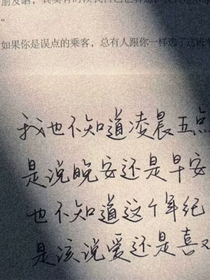 如果你是误点的乘客，总有人跟你一样
我也不知道凌晨五点
是说晚安还是早安
也不知道这个年纪
是该说爱还是喜